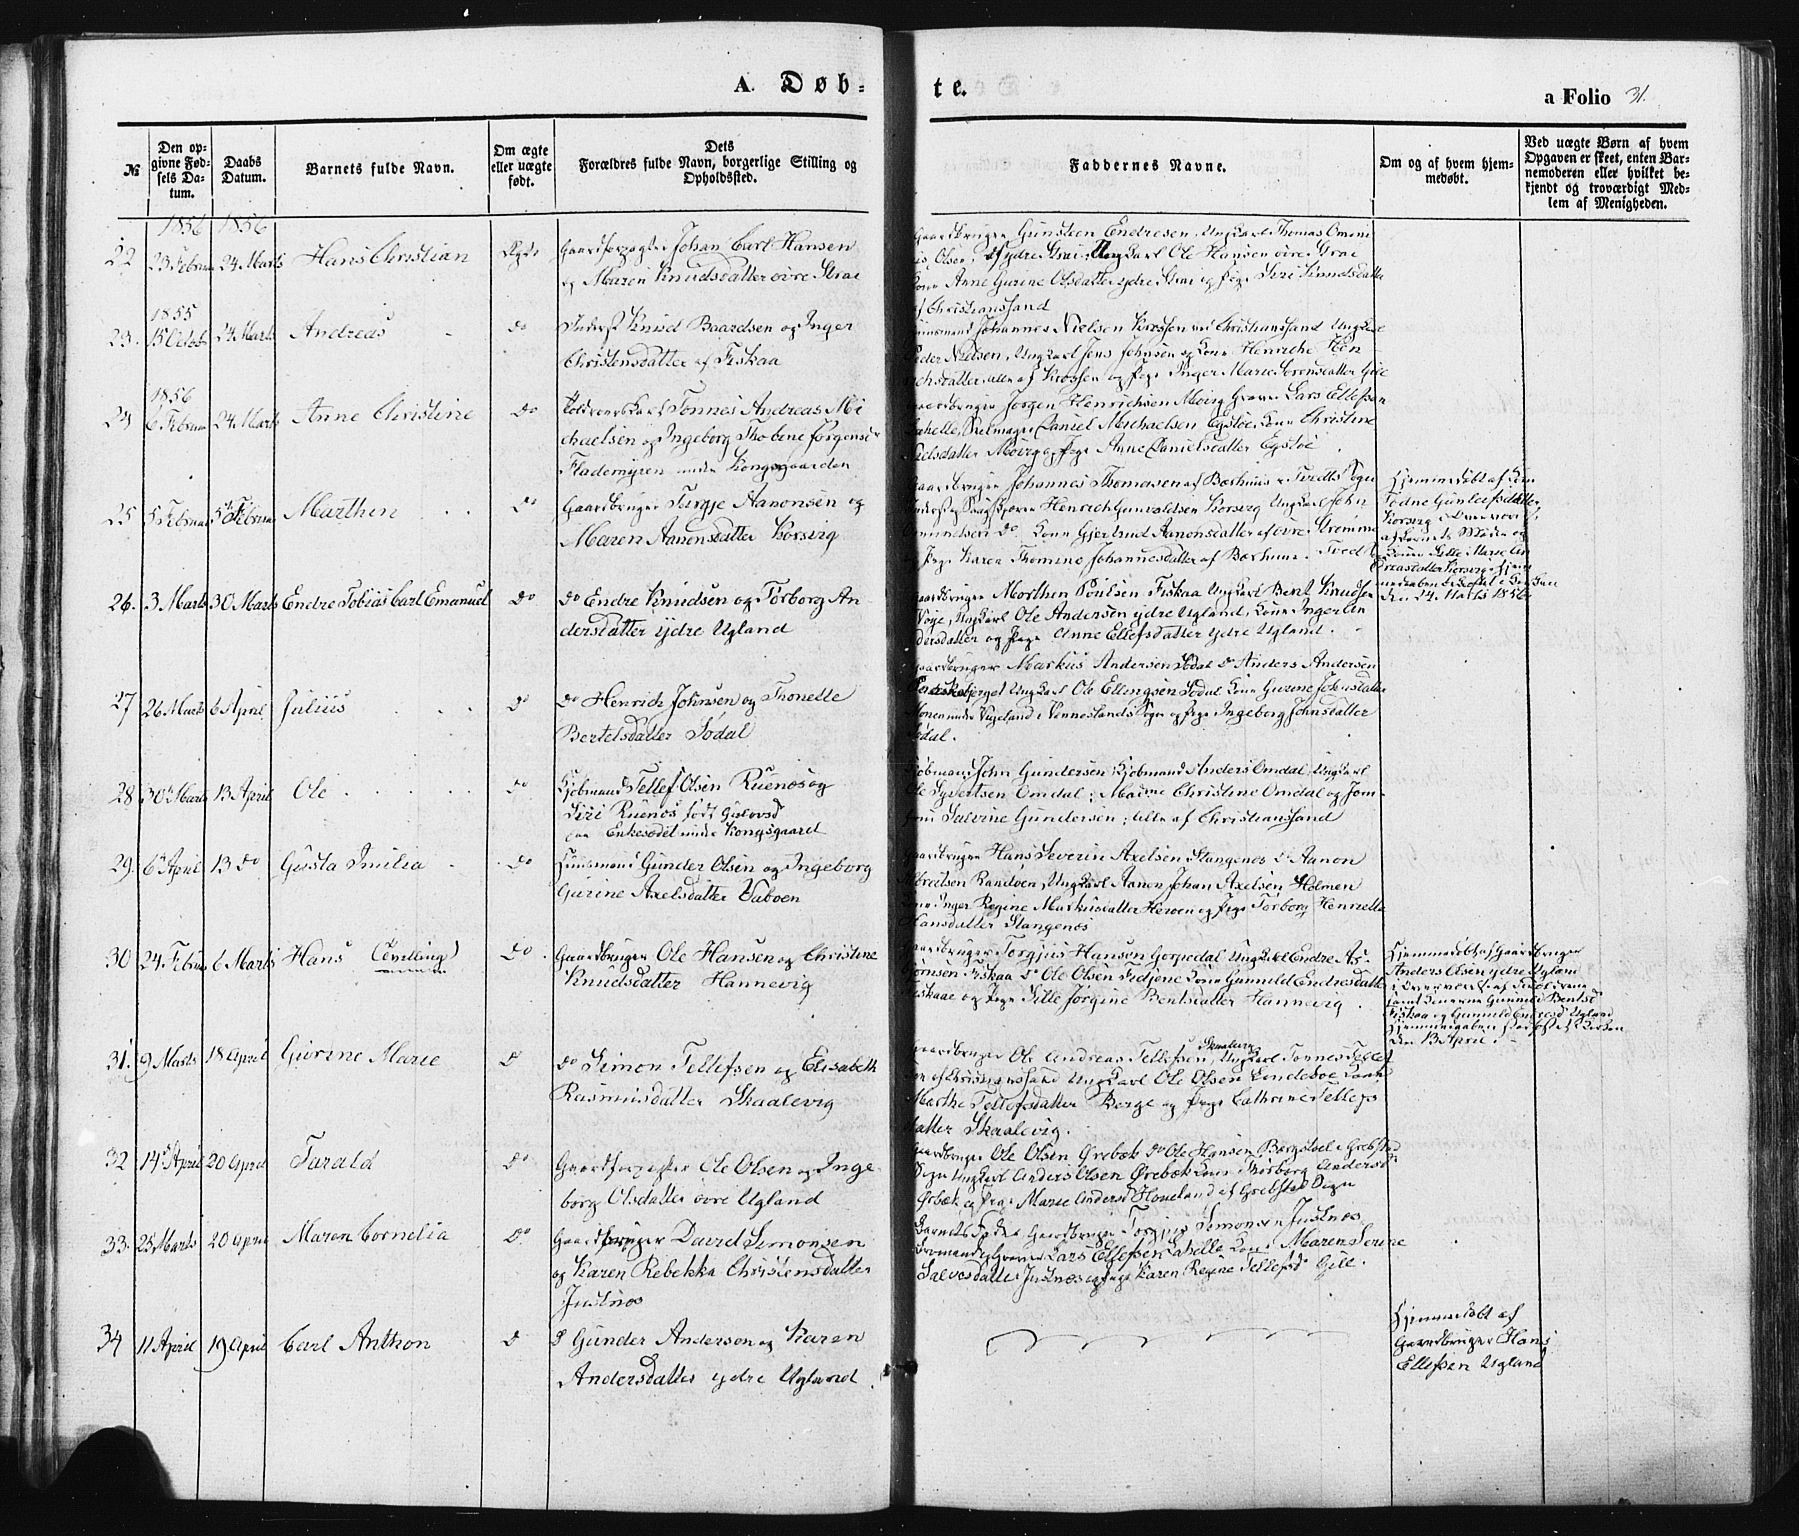 A. Døb-
te.
a Folio 31.
№
Den op-
givne Fød-
sels Da-
tum.
Daabs
Datum.
Barnets fulde Navn.
Om ægte
eller uægte
født.
Dets
Forældres fulde Navn, borgerlige Stilling og
Opholdssted.
Faddernes Navne.
Om og af hvem hjem-
medøbt.
Ved uægte Børn af hvem
Opgaven er skeet, enten Bar-
nemoderen eller hvilket be-
kjendt og troværdigt Med-
lem af Menigheden.
1856 1856
22 23 Februar 24 Marts Hans Christian Ægte
Johan Carl Hansen
og Maren Knudsdatter øvre Strai
Gaardbruger Gunsteen Endresen, Ungkarl Thomas
Olsen, af ydre Strai, Ungkarl Ole Hansen øvre Strai
Kone Anne Gurine Olsdatter ydre Strai og Pige Siri Knudsdatter
af Christianssand
1855
23. 15 Octob 24 Marts Andreas do
Inderst Knud Baardsen og Inger
Christensdatter af Fiskaa
Huusmand Johannes Nielsen Krossen ved Christianssand Ungkarl
Peder Nielsen, Ungkarl Jens Johnsen og Kone Henriche Hen
richsdatter, alle af Krossen og Pige Inger Marie Sørensdatter
1856
24 6 Februar 24 Marts Anne Christine do
Tønnes Andreas Mi
chaelsen og Ingeborg Thobine Jørgensd
Flademyren under Kongsgaarden
Gaardbruger Jørgen Henrichsen Møvig Graver Lars Ellefsen
Kahelle, Daniel Michaelsen Egstøe, Kone Christine
Nielsdatter Møvig og Pige Anne Danielsdatter Egstøe
25 5 Februar 5 Februar Marthin do
Gaardbruger Terje Aanonsen og
Maren Aanonsdatter Korsvig
Gaardbruger Johannes Thomasen af Bærhuus i Tvedts Sogn
Henrich Gunvaldsen Korsvig Ungkarl John
do Kone Gjertrud Aanonsdatter af øvre Strømme
og Pige Karen Thomine Johannesdatter af Bærhuus i Tvedt
Hjemmedøbt af Kone
Tødne Gunleifsdatter
Korsvig i Overvær
af Barnets Moder og
Kone Sille Marie An
dreasdatter Korsvig
den 24 Marts 1856
26. 3 Marts 30 Marts Endre Tobias Carl Emanuel do
do Endre Knudsen og Torborg An
dersdatter ydre Ugland
Gaardbruger Morthen Poulsen Fiskaa Ungkarl Bent Knudsen
Voie, Ungkarl Ole Andersen ydre Ugland, Kone Inger An
dersdatter og Pige Anne Ellefsdatter ydre Ugland.
27 26 Marts 6 April Julius do
do Henrich Johnsen og Thonette
Bertelsdatter Sødal
Gaardbruger Markus Andersen Sødal do Anders Andersen
Ungkarl Ole Ellingsen Sødal Kone Gurine Johnsdatter
Monen under Vigeland i Venneslands Sogn og Pige Ingeborg Johnsdatter
Sødal.
28 30 Marts 13 April Ole do
Kjøbmand Tellef Olsen Ruenæs og
Siri Ruenæs født
paa Enkesædet under Kongsgaard
Kjøbmand John Gundersen, Kjøbmand Anders Omdal, Ungkarl
Ole Syvertsen Omdal; Madme Christine Omdal og Jom-
fru Salvine Gundersen; alle af Christianssand
29. 6 April 13 do Gusta Emilia do
Huusmand Gunder Olsen og Ingeborg
Gurine Axelsdatter Vaboen
Gaardbruger Hans Severin Axelsen Stangenæs do Aanon
Albretsen Randøen, Ungkarl Aanon Johan Axelsen Holmen
Kone Inger Regine Markusdatter Herøen og Pige Torborg Henriette
Hansdatter Stangenæs
30 24 Februar 6 Marts Hans (Tvilling) do
Gaardbruger Ole Hansen og Christine
Knudsdatter Hannevig
Gaardbruger Torgjus Hansen Gorpedal Ungkarl Endre As-
bjørnsen Fiskaa do Ole Olsen Fidjene Kone Gunnild Endresdatter
Fiskaae og Pige Sille Jørgine Bentsdatter Hannevig.
Hjemmedøbt af Gaardbruger
Anders Olsen ydre Ugland
i Overvær af Forældrene
samt Konerne Gunnild Bentsd
Fiskaa og Gunnild Endresd Ugland
den 13 April.
31. 9 Marts 18 April Giorine Marie do
do Simon Tellefsen og Elisabeth
Rasmusdatter Skaalevig
Gaardbruger Ole Andreas Tellefsen Skaalevig, Ungkarl Tønnes Tellef
sen af Christianssand Ungkarl Ole Olsen Lindebøe Kone
Marthe Tellefsdatter Berge og Pige Cathrine Tellefs
datter Skaalevig.
32 14 April 20 April Tarald do
Gaardforpagter Ole Olsen og Inge
borg Olsdatter øvre Ugland
Gaardbruger Ole Olsen Ørebæk do Ole Hansen i Grebstad
Sogn Ungkarl Anders Olsen Ørebæk Kone Thorborg Andersd
Ørbæk og Pige Marie Andersd Honeland af Grebstad Sogn
33. 25 Marts 20 April Maren Cornelia do
Gaardbruger David Simonsen
og Karen Rebekka Christensdatter
Justnæs
Barnets Fader Gaardbruger Torgius Simonsen Justnæs
Graver Lars Ellefsen Kahelle Kone Maren Serine
Salvesdatter Justnæs og Pige Karen Regine Tellefsd Gile.
34 11 April 19 April Carl Anthon do
do Gunder Anderson og Karen
Andersdatter ydre Ugland
Hjemmedøbt af
Gaardbruger Hans
Ellefsen Ugland